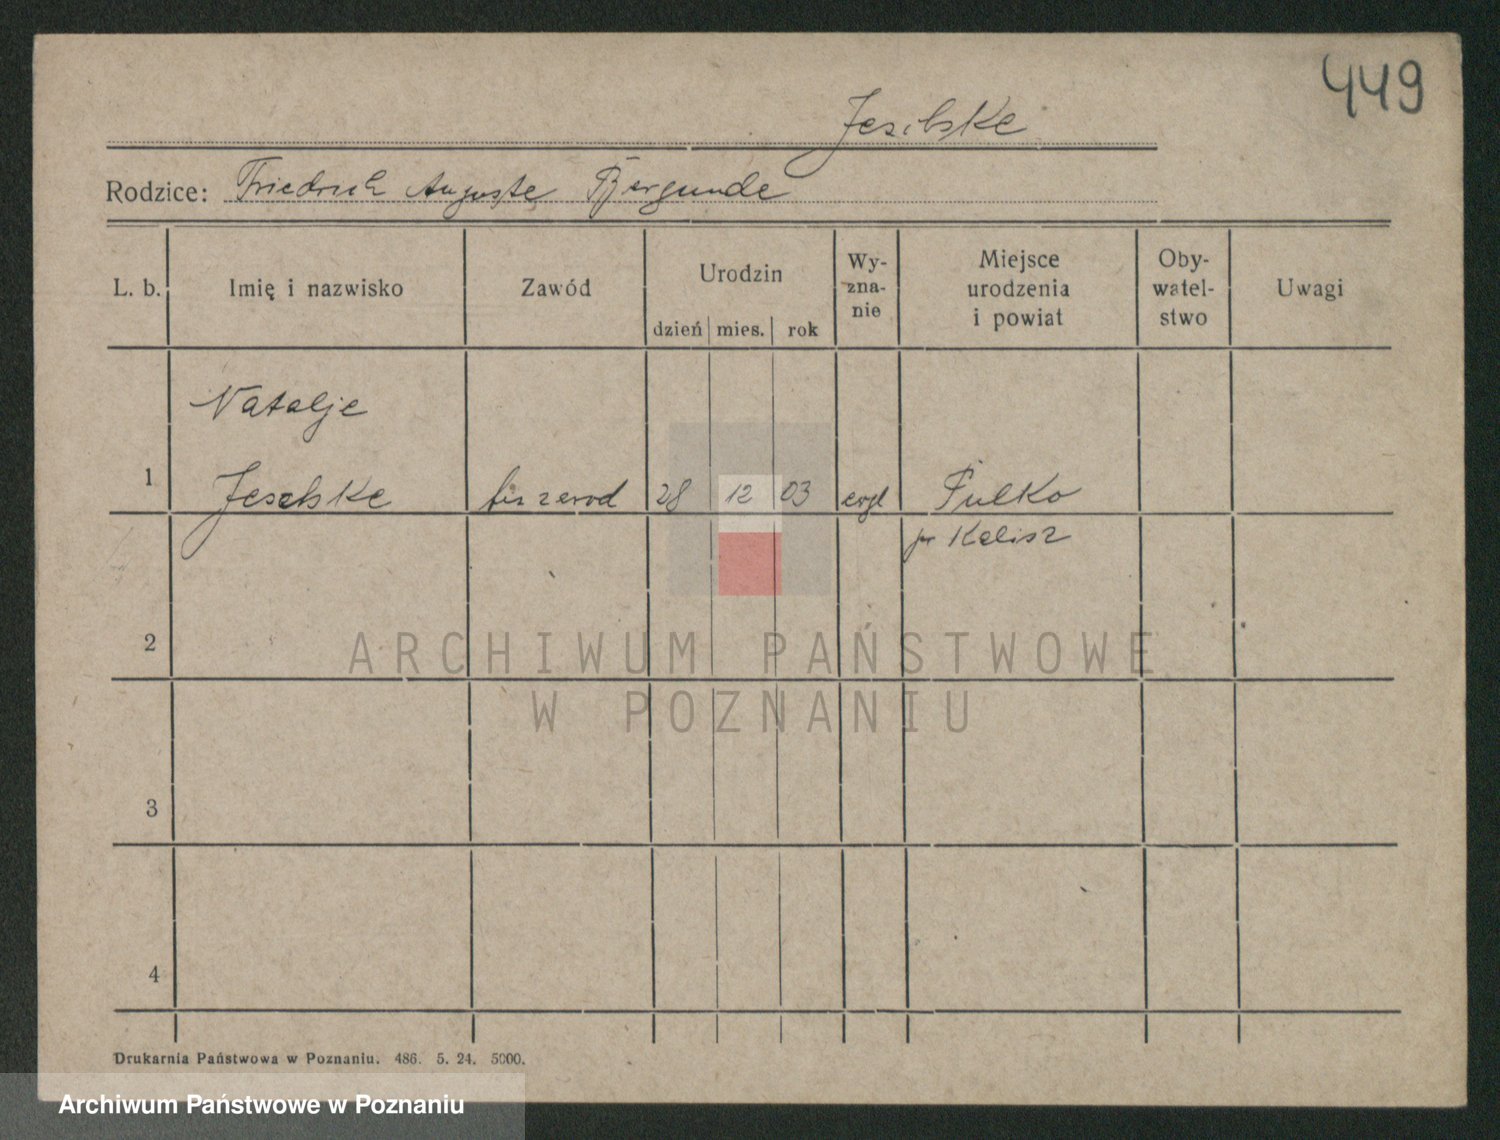 449
Jeschke
Rodzice: Friedrich Auguste Bergunde
L. b. Imię i nazwisko Zawód Urodzin dzień mies. rok Wy-zna-nie Miejsce urodzenia i powiat Oby-watel-stwo Uwagi
Natalje
1 Jeschke bez zawod 28 12 03 evgl
p. Kalisz
2
ARCHIWUM PAŃSTWOWE
W POZNANIU
3
4
Drukarnia Państwowa w Poznaniu. 486. 5. 24. 5000.
Archiwum Państwowe w Poznaniu